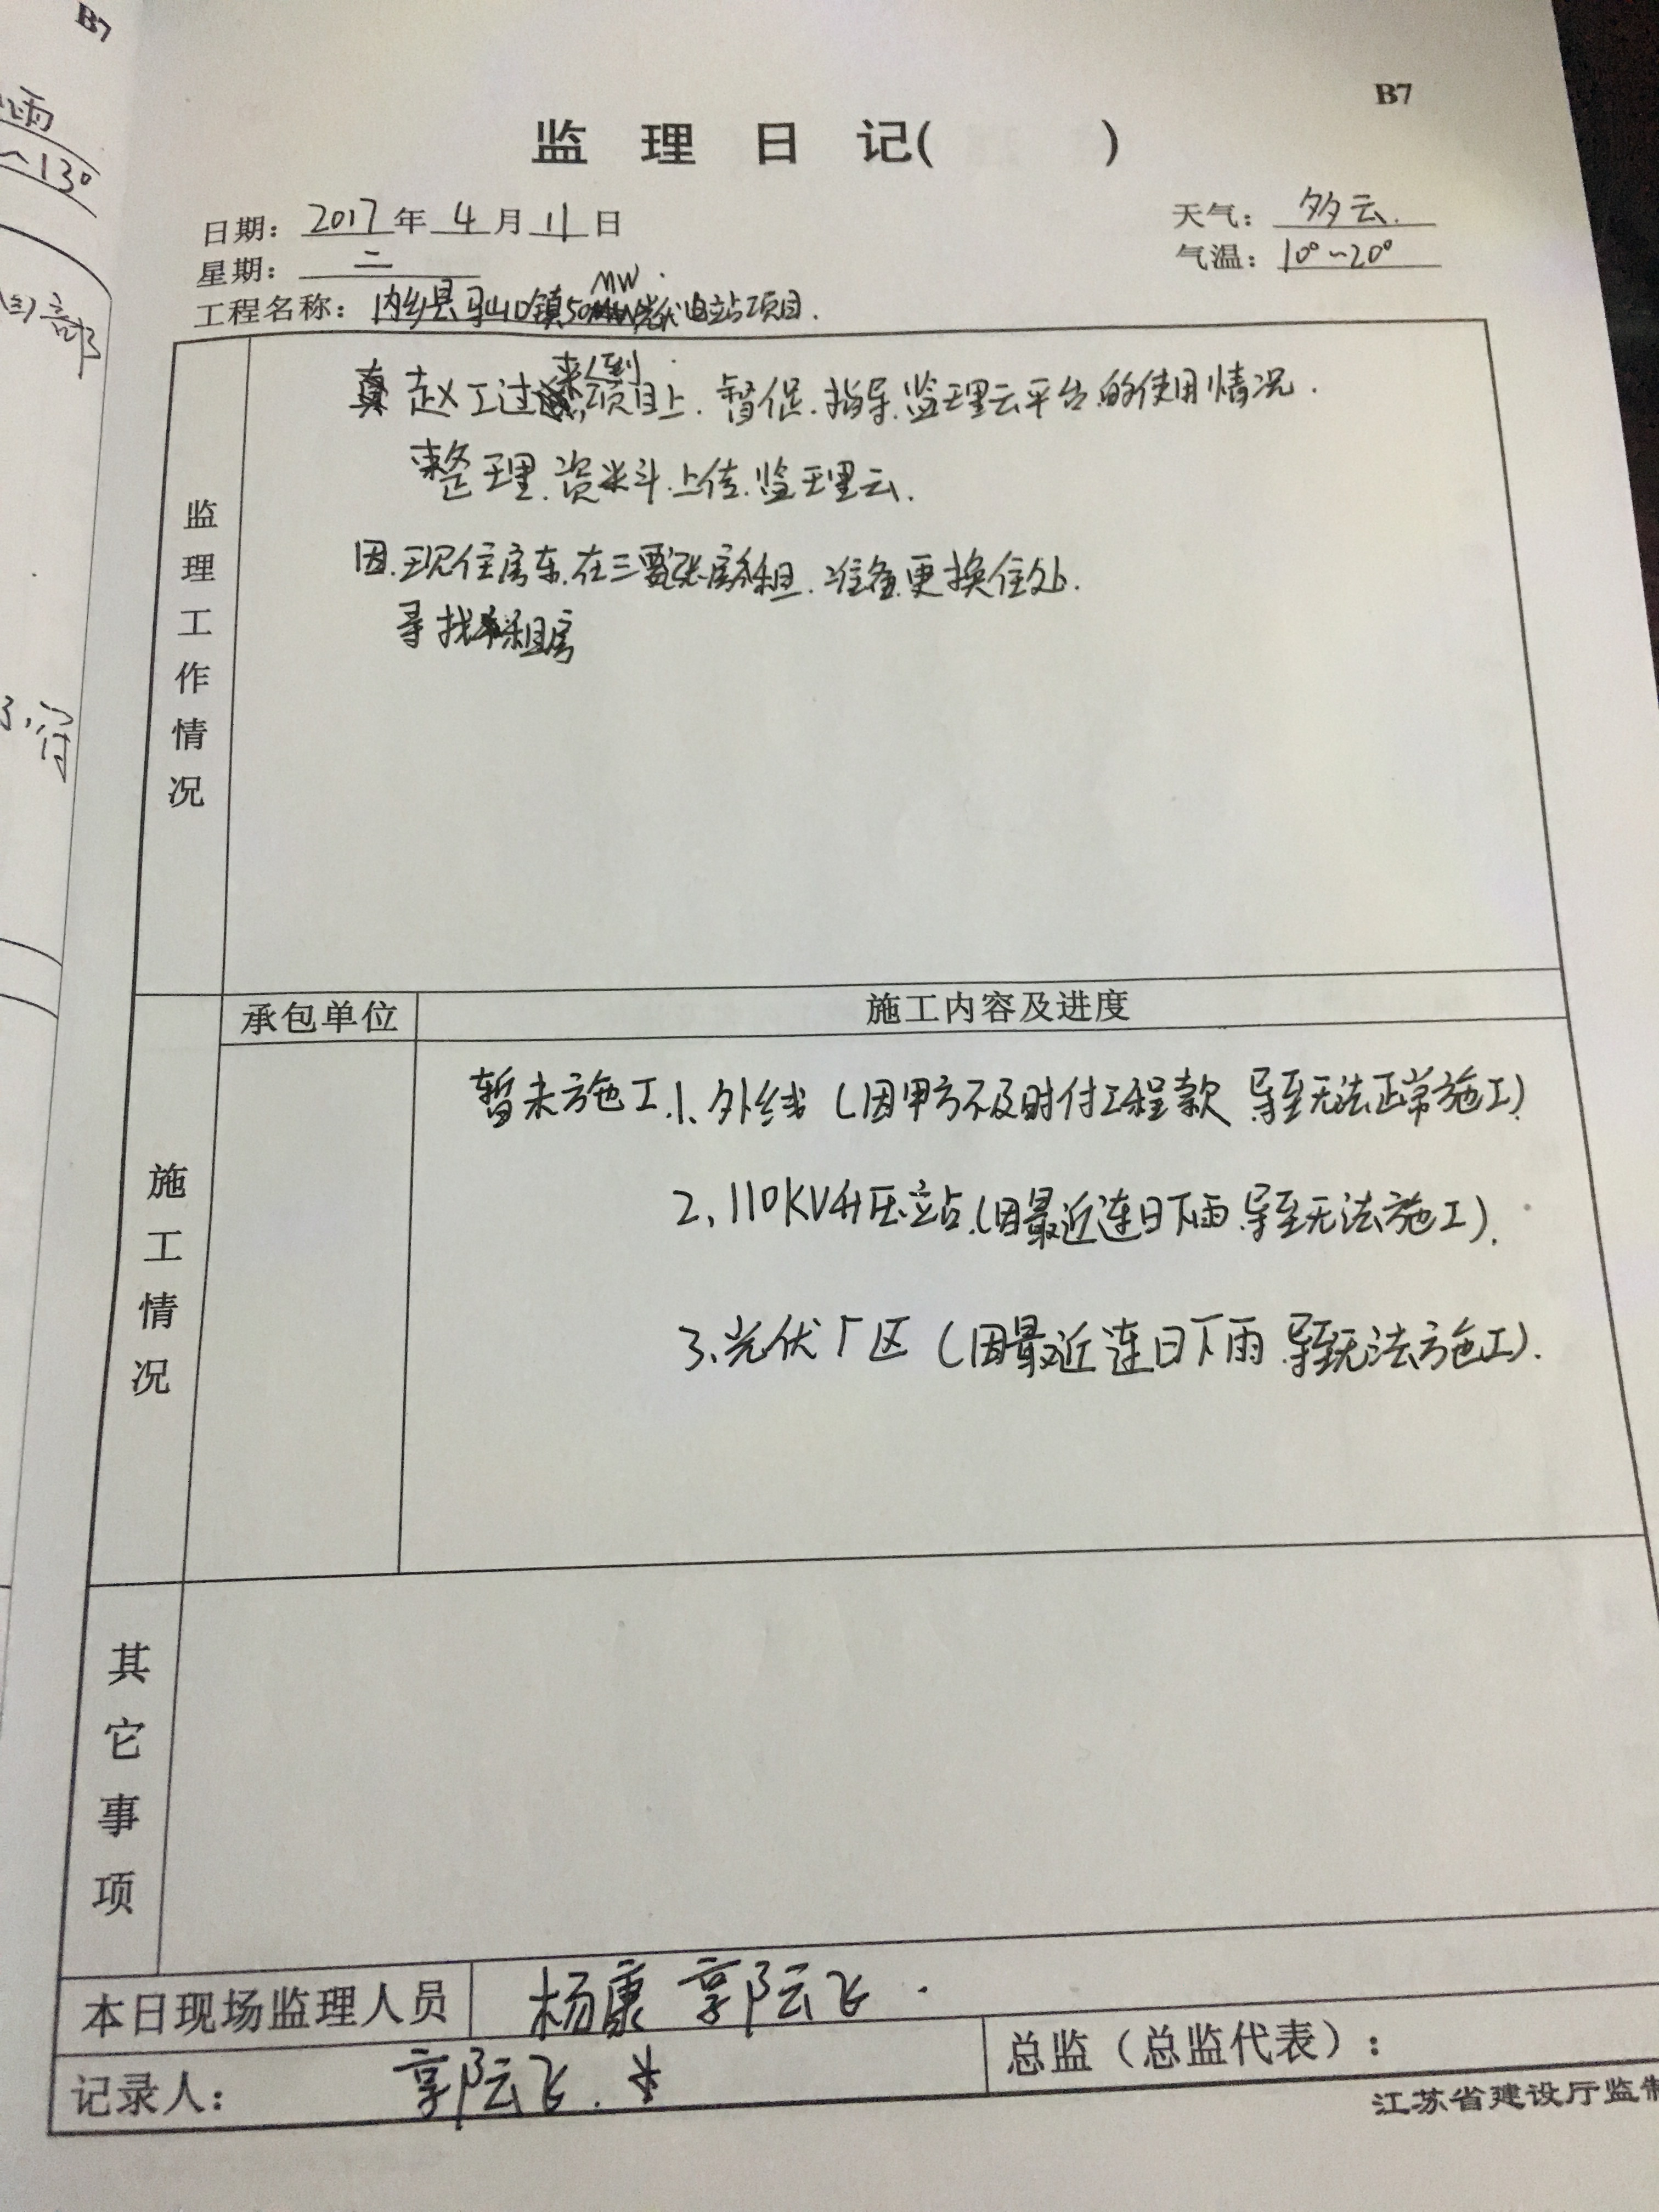 B7
B7
雨
~13°
部
监理日记( )
日期：2017年4月11日
天气：多云.
星期：二
气温：10°~20°
工程名称：内乡县马山口镇50MW光伏电站项目.
监理工作情况
赵工过来到项目上.督促.指导.监理云平台的使用情况.
整理.资料.上传.监理云.
因.现住房东.在三要涨房租.准备更换住处.
寻找租房
承包单位
施工内容及进度
施工情况
暂未施工.1、外线（因甲方不及时付工程款 导至无法正常施工）
2、110KV升压站.（因最近连日下雨.导至无法施工）.
3、光伏厂区（因最近连日下雨.导至无法施工）.
其它事项
本日现场监理人员
杨康 郭云飞.
记录人：
郭云飞.
总监（总监代表）：
江苏省建设厅监制